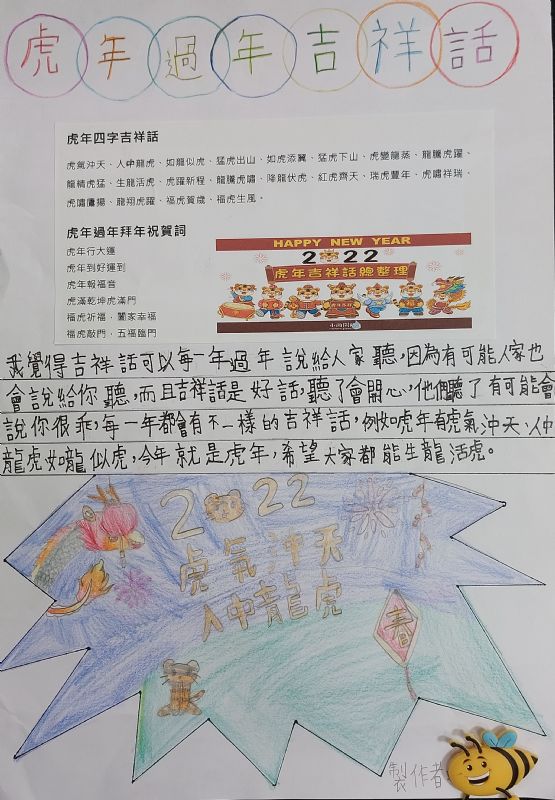 虎年過年吉祥話
虎年四字吉祥話
虎氣沖天、人中龍虎、如龍似虎、猛虎出山、如虎添翼、猛虎下山、虎變龍蒸、龍騰虎躍、
龍精虎猛、生龍活虎、虎躍新程、龍騰虎嘯、降龍伏虎、紅虎齊天、瑞虎豐年、虎嘯祥瑞、
虎嘯鷹揚、龍翔虎躍、福虎賀歲、福虎生風。
虎年過年拜年祝賀詞
虎年行大運
虎年到好運到
虎年報福音
虎滿乾坤虎滿門
福虎祈福，闔家幸福
福虎敲門，五福臨門
HAPPY NEW YEAR
2022
虎年吉祥話總整理
我覺得吉祥話可以每一年過年說給人家聽，因為有可能人家也
會說給你聽，而且吉祥話是好話，聽了會開心，他們聽了有可能會
說你很乖，每一年都會有不一樣的吉祥話，例如虎年有虎氣沖天、人中
龍虎、如龍似虎，今年就是虎年，希望大家都能生龍活虎。
2022
虎氣沖天
人中龍虎
春
製作者